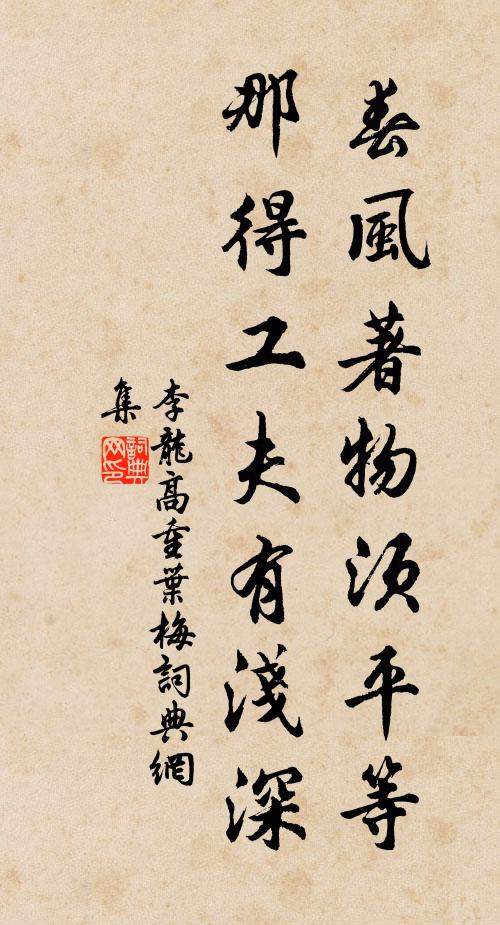 春風著物須平等
那得工夫有淺深
李龍高重葉梅詞典網
集
詞典
网印